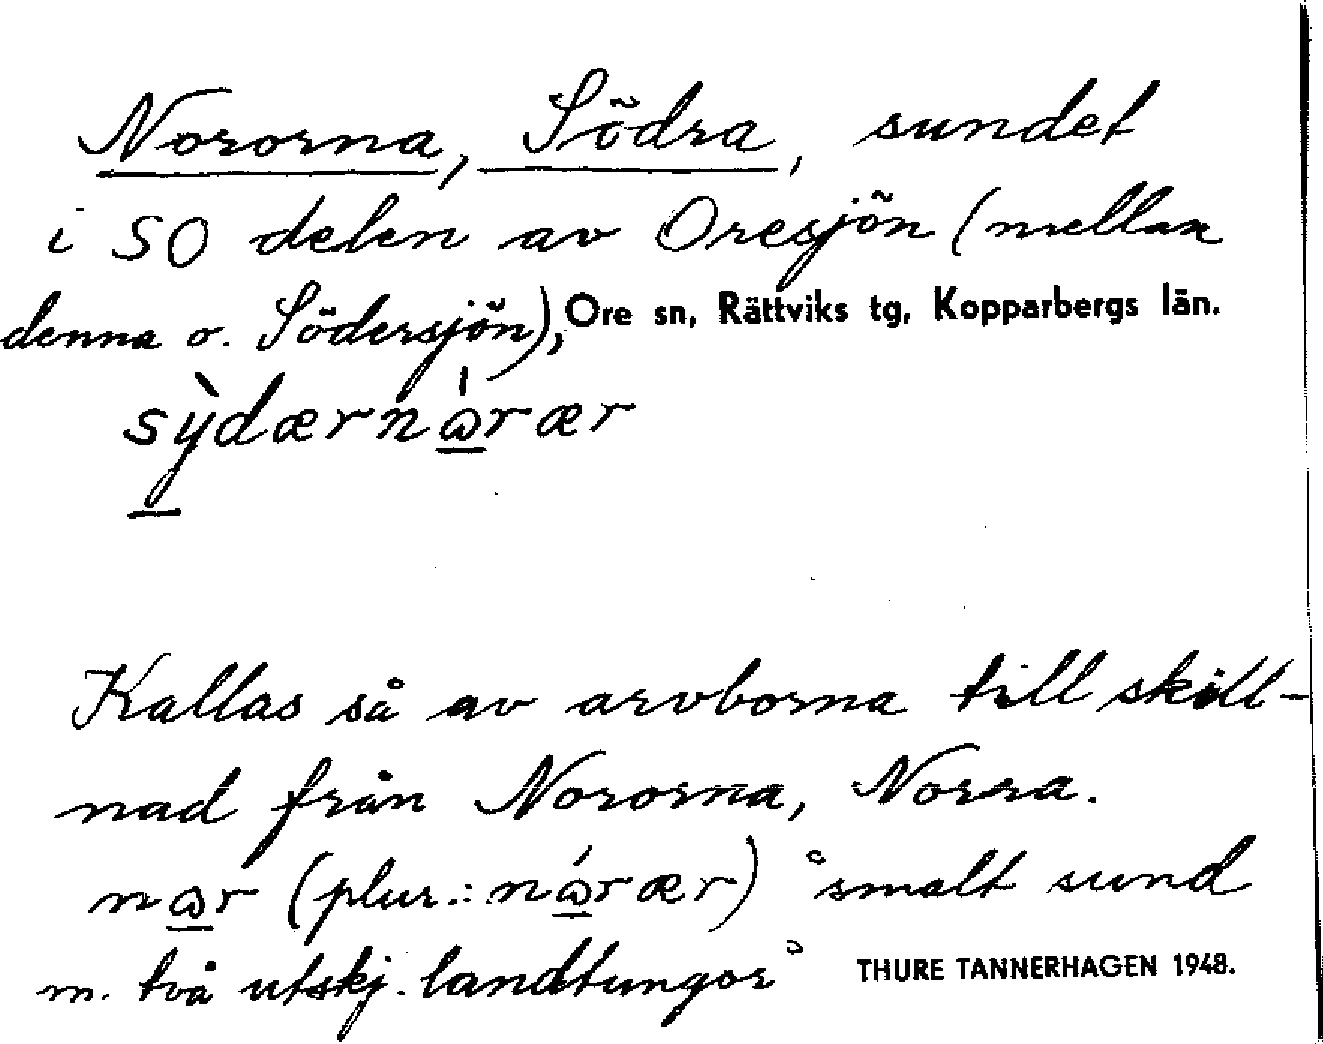 Nororna, Södra, sundet
i SO delen av Oresjön (mellan
denna o. Södersjön), Ore sn, Rättviks tg, Kopparbergs län.
sỳdærnɷ́rær
Kallas så av arvborna till skill-
nad från Nororna, Norra.
nɷr (plur.: nɷ́rær) "smalt sund
m. två utskj. landtungor"
THURE TANNERHAGEN 1948.